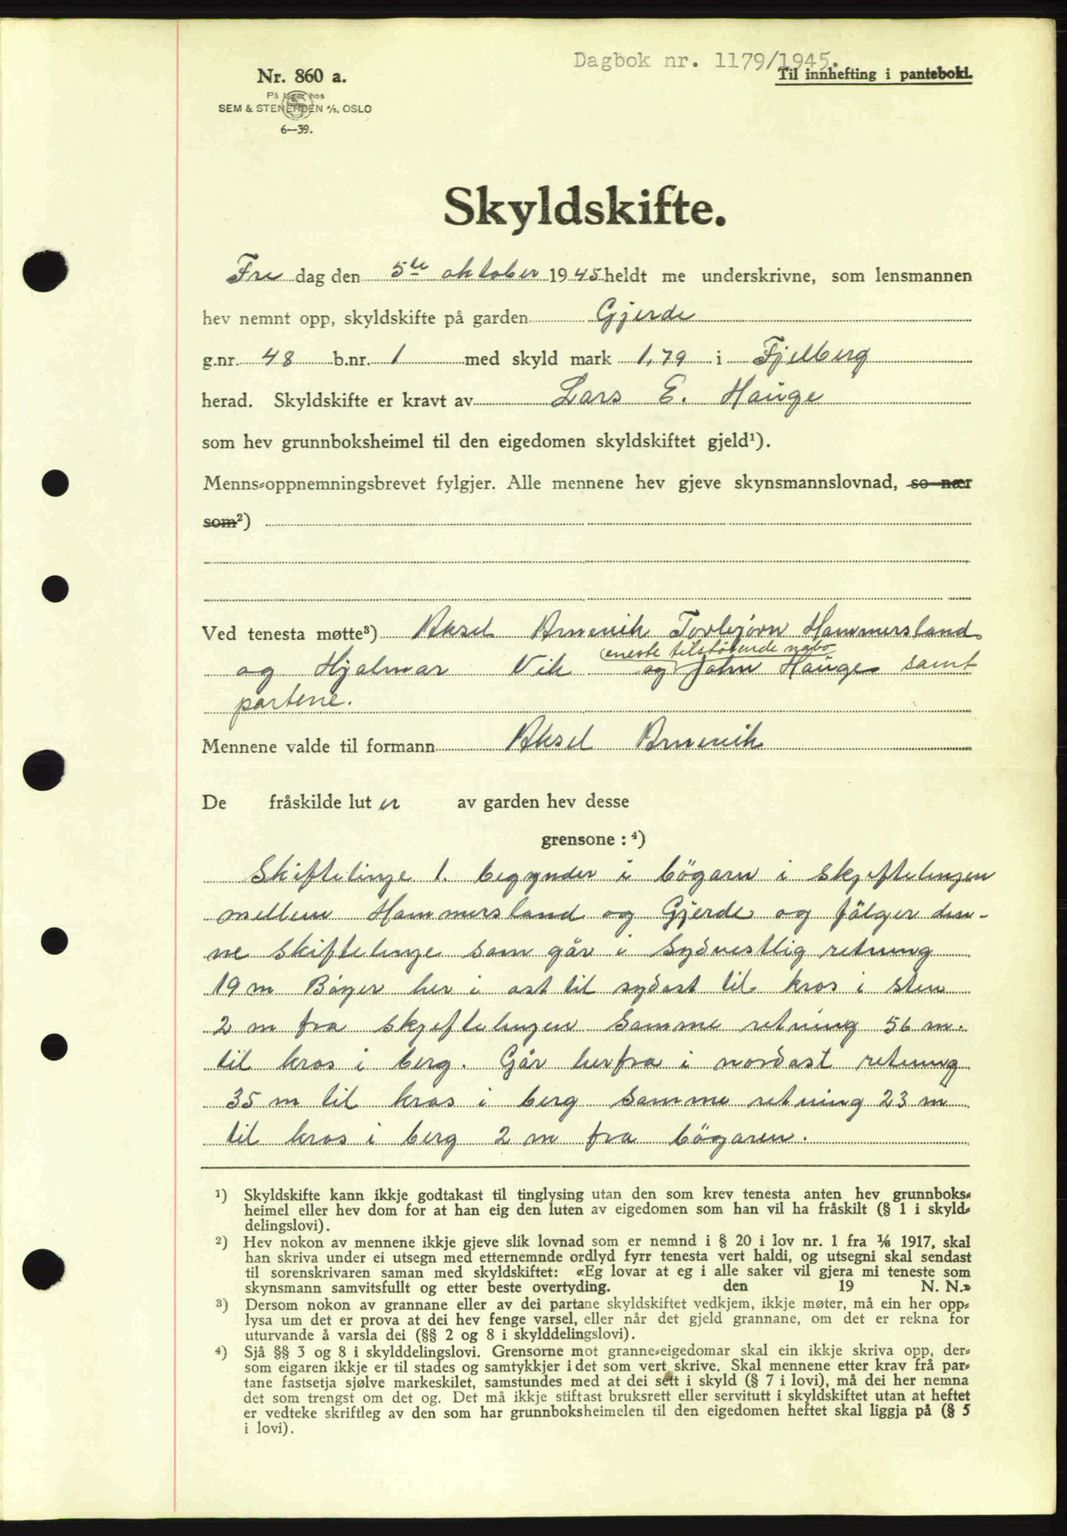 Dagbok nr. 1179/1945.
Til innhefting i pantebok.
Nr. 860 a.
På lager hos
SEM & STENERSEN A/S, OSLO
6—39.
Skyldskifte.
Fre dag den 5te oktober 1945 heldt me underskrivne, som lensmannen
hev nemnt opp, skyldskifte på garden Gjerde
g.nr. 48 b.nr. 1 med skyld mark 1,79 i Fjelberg
herad. Skyldskifte er kravt av Lars E. Hauge
som hev grunnboksheimel til den eigedomen skyldskiftet gjeld¹).
Menns-oppnemningsbrevet fylgjer. Alle mennene hev gjeve skynsmannslovnad, so nær
som²)
Ved tenesta møtte³) Aksel Arnevik Torbjörn Hammersland
eneste tilstötende nabo
og Hjalmar Vik og John Hauge samt
partene.
Mennene valde til formann Aksel Arnevik
De fråskilde lut er av garden hev desse
grensone : ⁴)
Skiftelinje 1. begynder i bögarn i skjeftelingen
mellem Hammersland og Gjerde og fölger den-
ne skiftelinje som går i sydvestlig retning
19 m Böyer her i ost til sydost til kros i sten
2 m fra skjeftelingen Samme retning 56 m.
til kros i berg. Går herfra i nordost retning
35 m til kros i berg Samme retning 23 m
til kros i berg 2 m fra bögaren.
¹) Skyldskifte kann ikkje godtakast til tinglysing utan den som krev tenesta anten hev grunnboks-
heimel eller hev dom for at han eig den luten av eigedomen som han vil ha fråskilt (§ 1 i skyld-
delingslovi).
²) Hev nokon av mennene ikkje gjeve slik lovnad som er nemnd i § 20 i lov nr. 1 fra ⅙ 1917, skal
han skriva under ei utsegn med etternemnde ordlyd fyrr tenesta vert haldi, og utsegni skal sendast
til sorenskrivaren saman med skyldskiftet: «Eg lovar at eg i alle saker vil gjera mi teneste som
skynsmann samvitsfullt og etter beste overtyding. den 19 N. N.»
³) Dersom nokon av grannane eller av dei partane skyldskiftet vedkjem, ikkje møter, må ein her opp-
lysa um det er prova at dei hev fenge varsel, eller når det gjeld grannane, om det er rekna for
uturvande å varsla dei (§§ 2 og 8 i skylddelingslovi).
⁴) Sjå §§ 3 og 8 i skylddelingslovi. Grensorne mot granne-eigedomar skal ein ikkje skriva opp, der-
som eigaren ikkje er til stades og samtykkjer i det som vert skrive. Skal mennene etter krav frå par-
tane fastsetja sjølve markeskilet, samstundes med at dei sett i skyld (§ 7 i lovi), må dei her nemna
det som trengst om det og. Det må ikkje stiftast bruksrett eller servitutt i skyldskiftet utan at heftet
er vedteke skriftleg av den som har grunnboksheimelen til den eigedomen heftet skal liggja på (§ 5
i lovi).